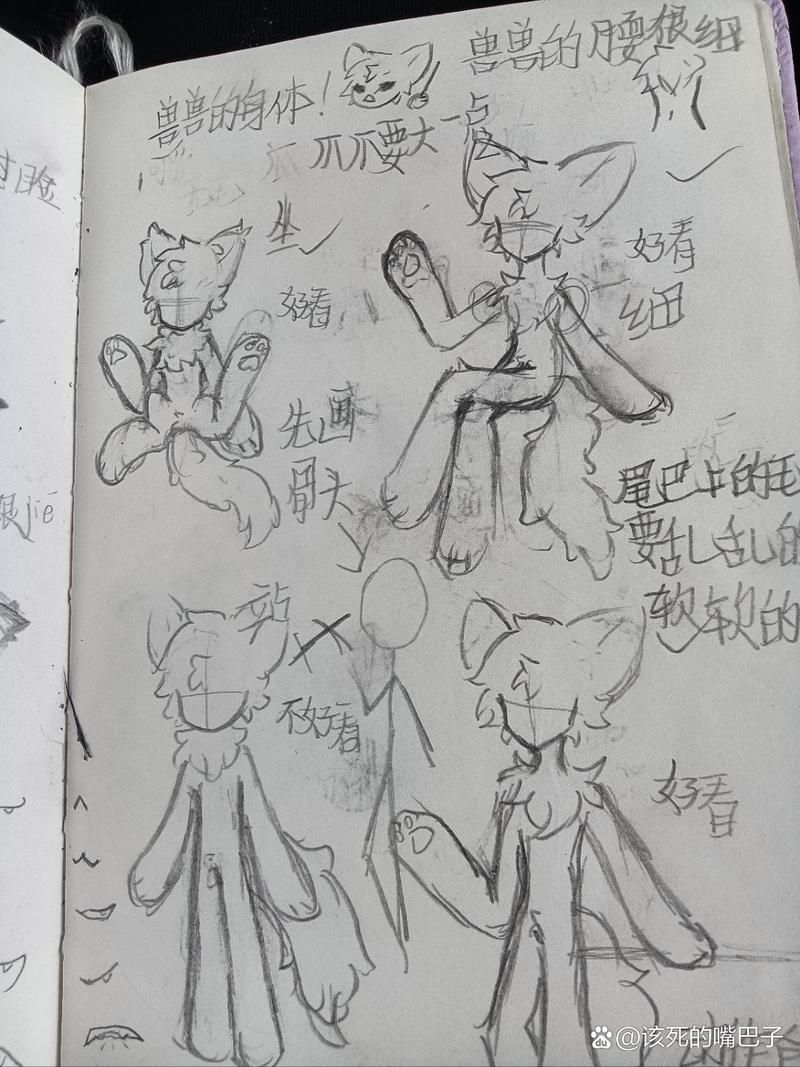 兽兽的腰狠细
兽兽的身体！
爪爪要大一点
坐
好看
好看
细
先画
骨头
尾巴上的毛
要乱乱的
软软的
站
不好看
好看
脸
jiē
@该死的嘴巴子